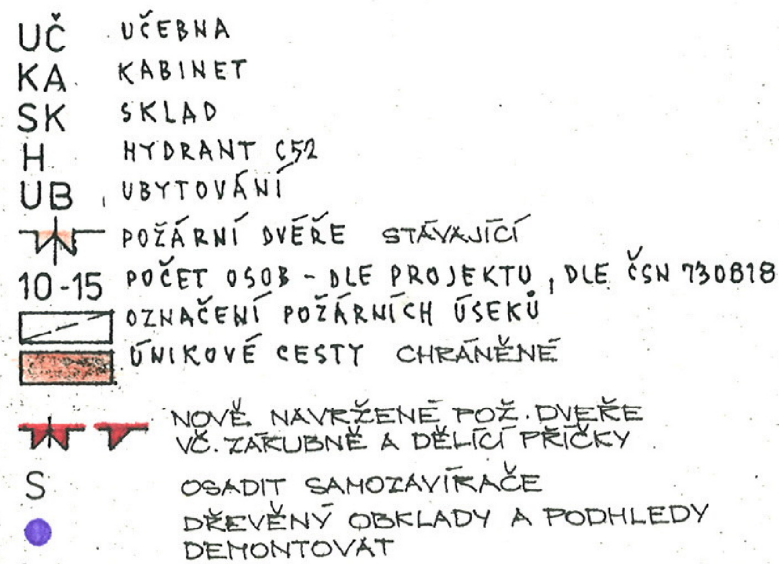 UČ UČEBNA
KA KABINET
SK SKLAD
H HYDRANT C52
UB UBYTOVÁNÍ
POŽÁRNÍ DVÉŘE STÁVAJÍCÍ
10-15 POČET OSOB - DLE PROJEKTU, DLE ČSN 730818
OZNAČENÍ POŽÁRNÍCH ÚSEKŮ
ÚNIKOVÉ CESTY CHRÁNĚNÉ
NOVĚ NAVRŽENÉ POŽ. DVEŘE
VČ. ZÁRUBNĚ A DĚLÍCÍ PŘÍČKY
S OSADIT SAMOZAVÍRAČE
DŘEVĚNÝ OBKLADY A PODHLEDY
DEMONTOVAT